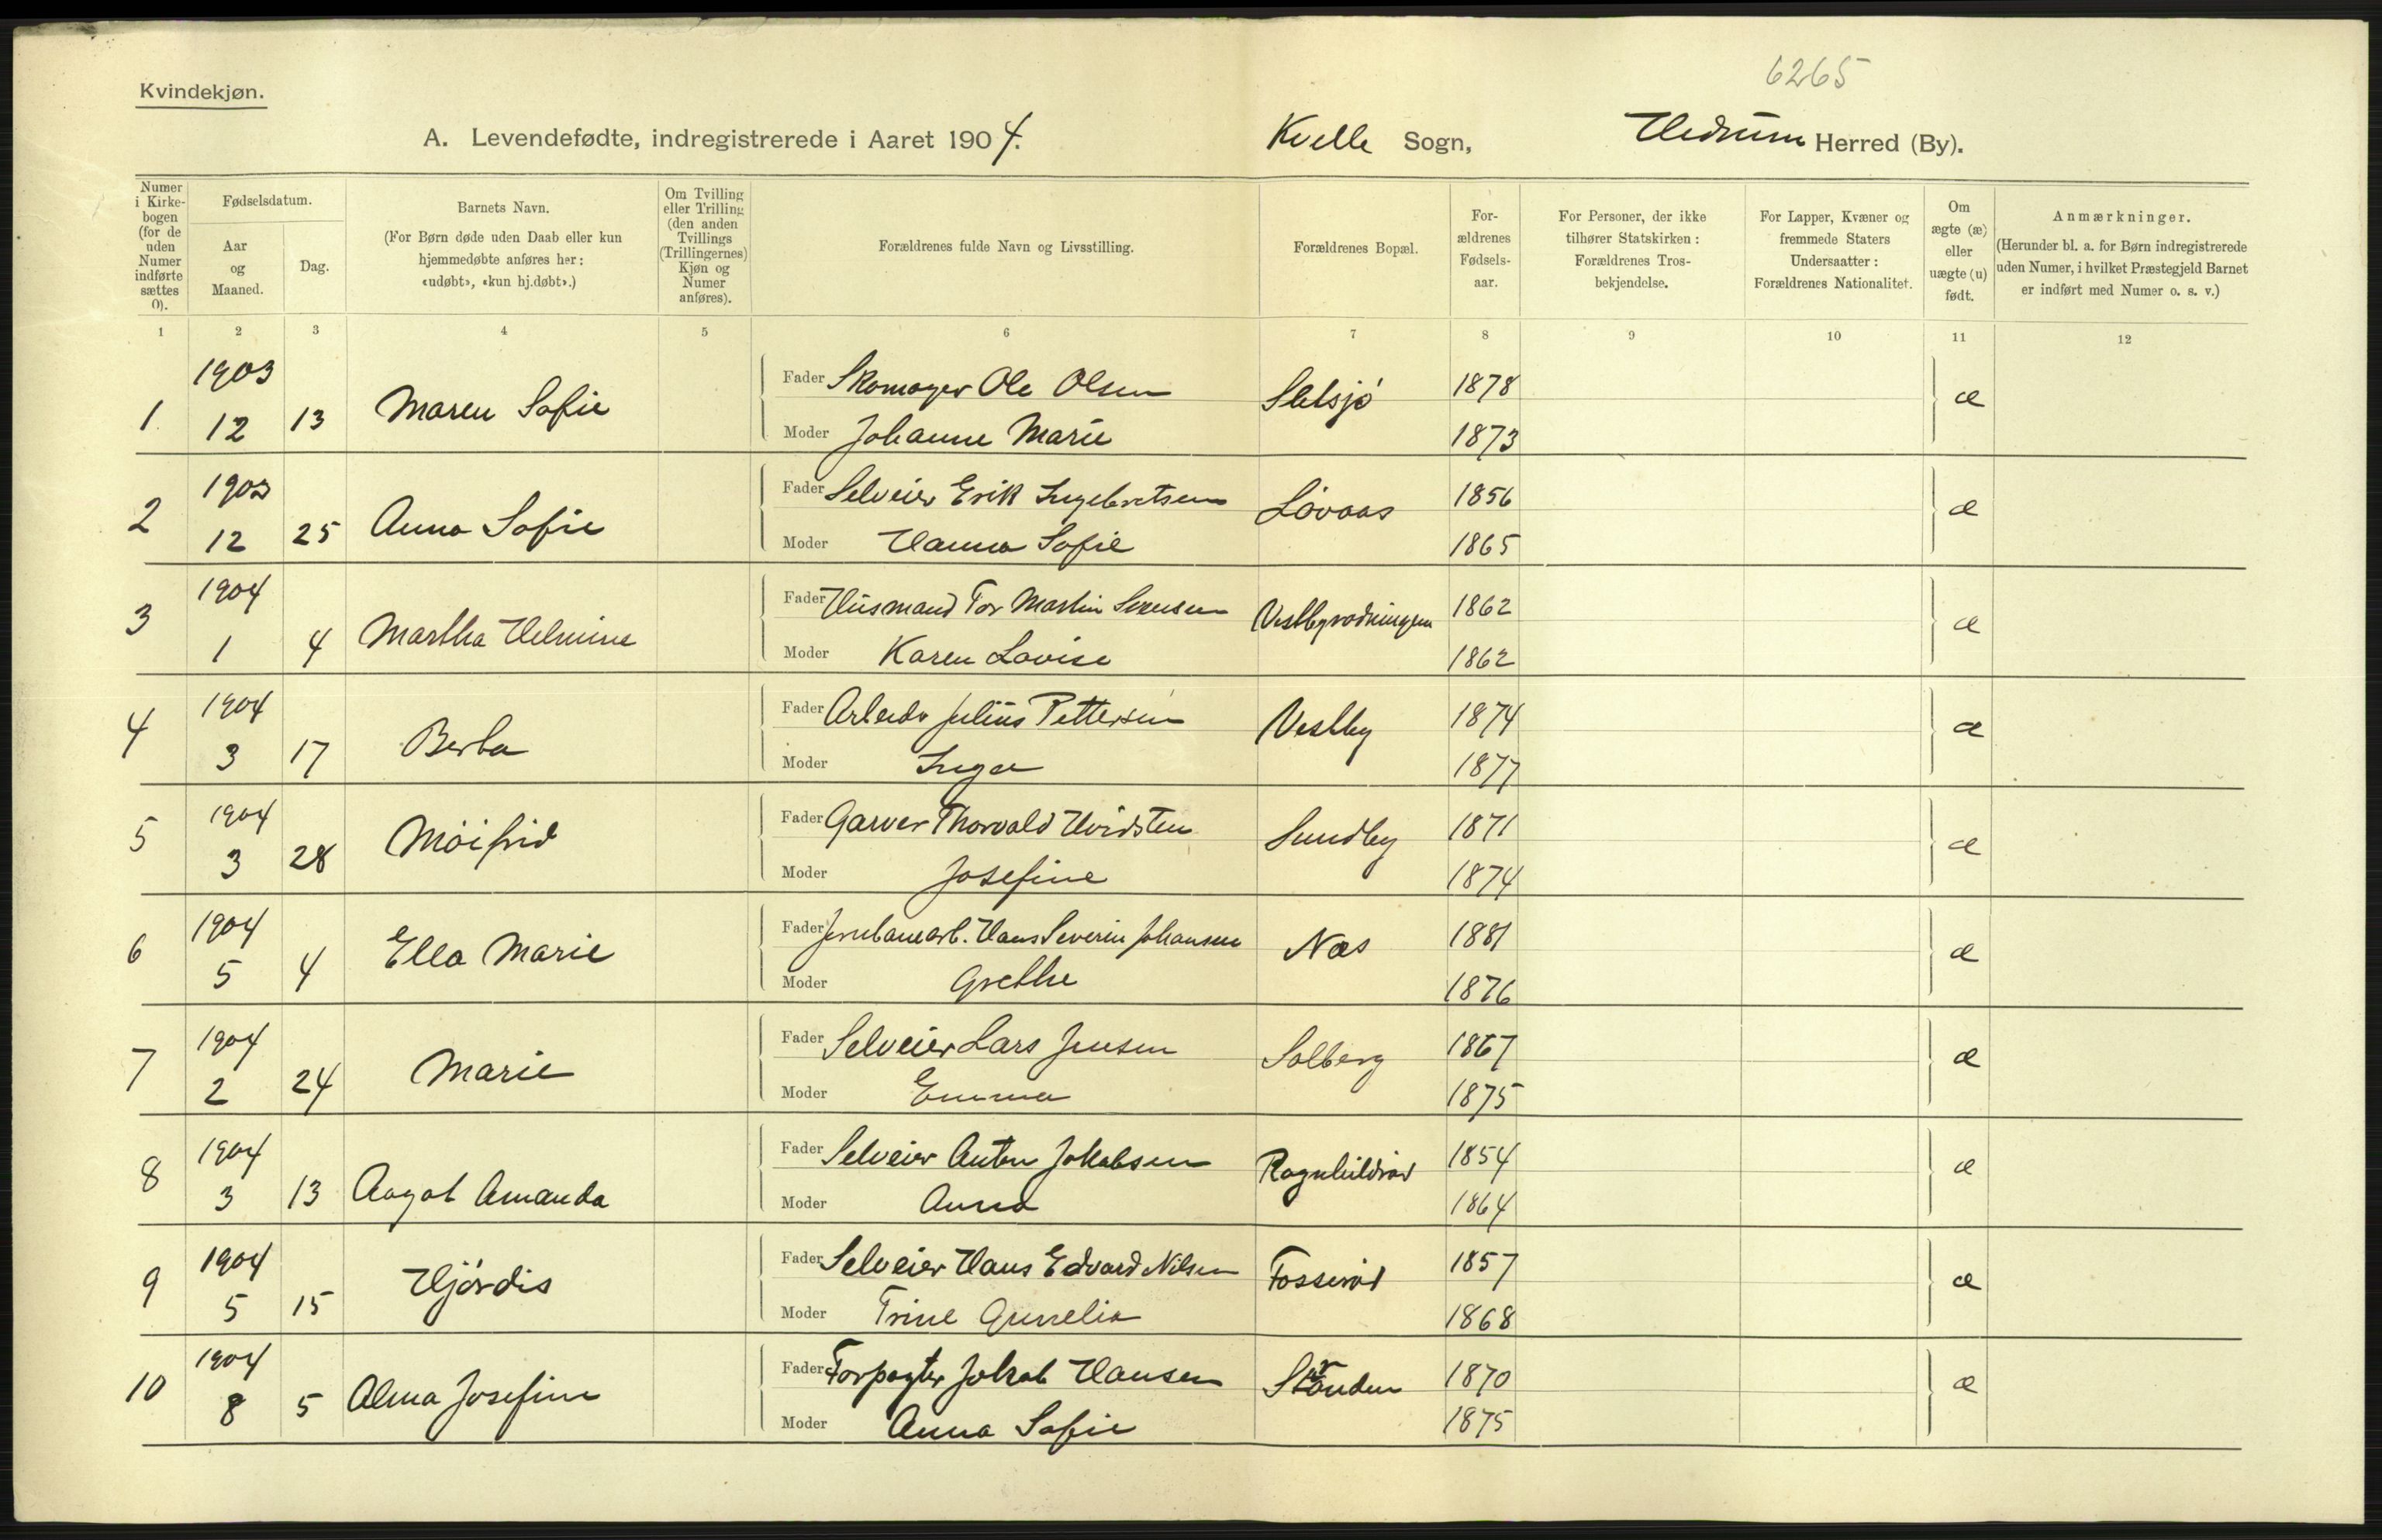 6265
Kvindekjøn.
A. Levendefødte, indregistrerede i Aaret 1904. Kvelle Sogn, Hedrum Herred (By).
Numer i Kirkebogen (for de uden Numer indførte sættes 0).
Fødselsdatum.
Aar og Maaned.
Dag.
Barnets Navn.
(For Børn døde uden Daab eller kun hjemmedøbte anføres her: «udøbt», «kun hj.døbt».)
Om Tvilling eller Trilling (den anden Tvillings (Trillingernes) Kjøn og Numer anføres).
Forældrenes fulde Navn og Livsstilling.
Forældrenes Bopæl.
Forældrenes Fødselsaar.
For Personer, der ikke tilhører Statskirken: Forældrenes Trosbekjendelse.
For Lapper, Kvæner og fremmede Staters Undersaatter: Forældrenes Nationalitet.
Om ægte (æ) eller uægte (u) født.
Anmærkninger.
(Herunder bl. a. for Børn indregistrerede uden Numer, i hvilket Præstegjeld Barnet er indført med Numer o. s. v.)
1 2 3 4 5 6 7 8 9 10 11 12
1903 Fader Skomager Ole Olsen 1878
1 12 13 Maren Sofie Sletsjö æ
Moder Johanne Marie 1873
1903 Fader Selveier Erik Ingebretsen 1856
2 12 25 Anna Sofie Lövaas æ
Moder Hanna Sofie 1865
1904 Fader Husmand Tor Martin 1862
3 1 4 Martha Helmine Vestbyrödningen æ
Moder Karen Lovise 1862
1904 Fader Arbeider Julius Pettersen 1874
4 3 17 Berta Vestby æ
Moder Inga 1877
1904 Fader Garver Thorvald Hvidsten 1871
5 3 28 Möifrid Sundby æ
Moder Josefine 1874
1904 Fader Jernbanearb. Hans Severin Johansen 1881
6 5 4 Ella Marie Næs æ
Moder Grethe 1876
1904 Fader Selveier Lars Jensen 1867
7 2 24 Marie Solberg æ
Moder Emma 1875
1904 Fader Selveier Anton Jakobsen 1854
8 3 13 Aagot Amanda Ragnhildröd æ
Moder Anna 1864
1904 Fader Selveier Hans Edvard Nilsen 1857
9 5 15 Hjördis Fosseröd æ
Moder Trine 1868
1904 Fader Forpagter Jakob Hansen 1870
10 8 5 Alma Josefine Stranden æ
Moder Anna Sofie 1875